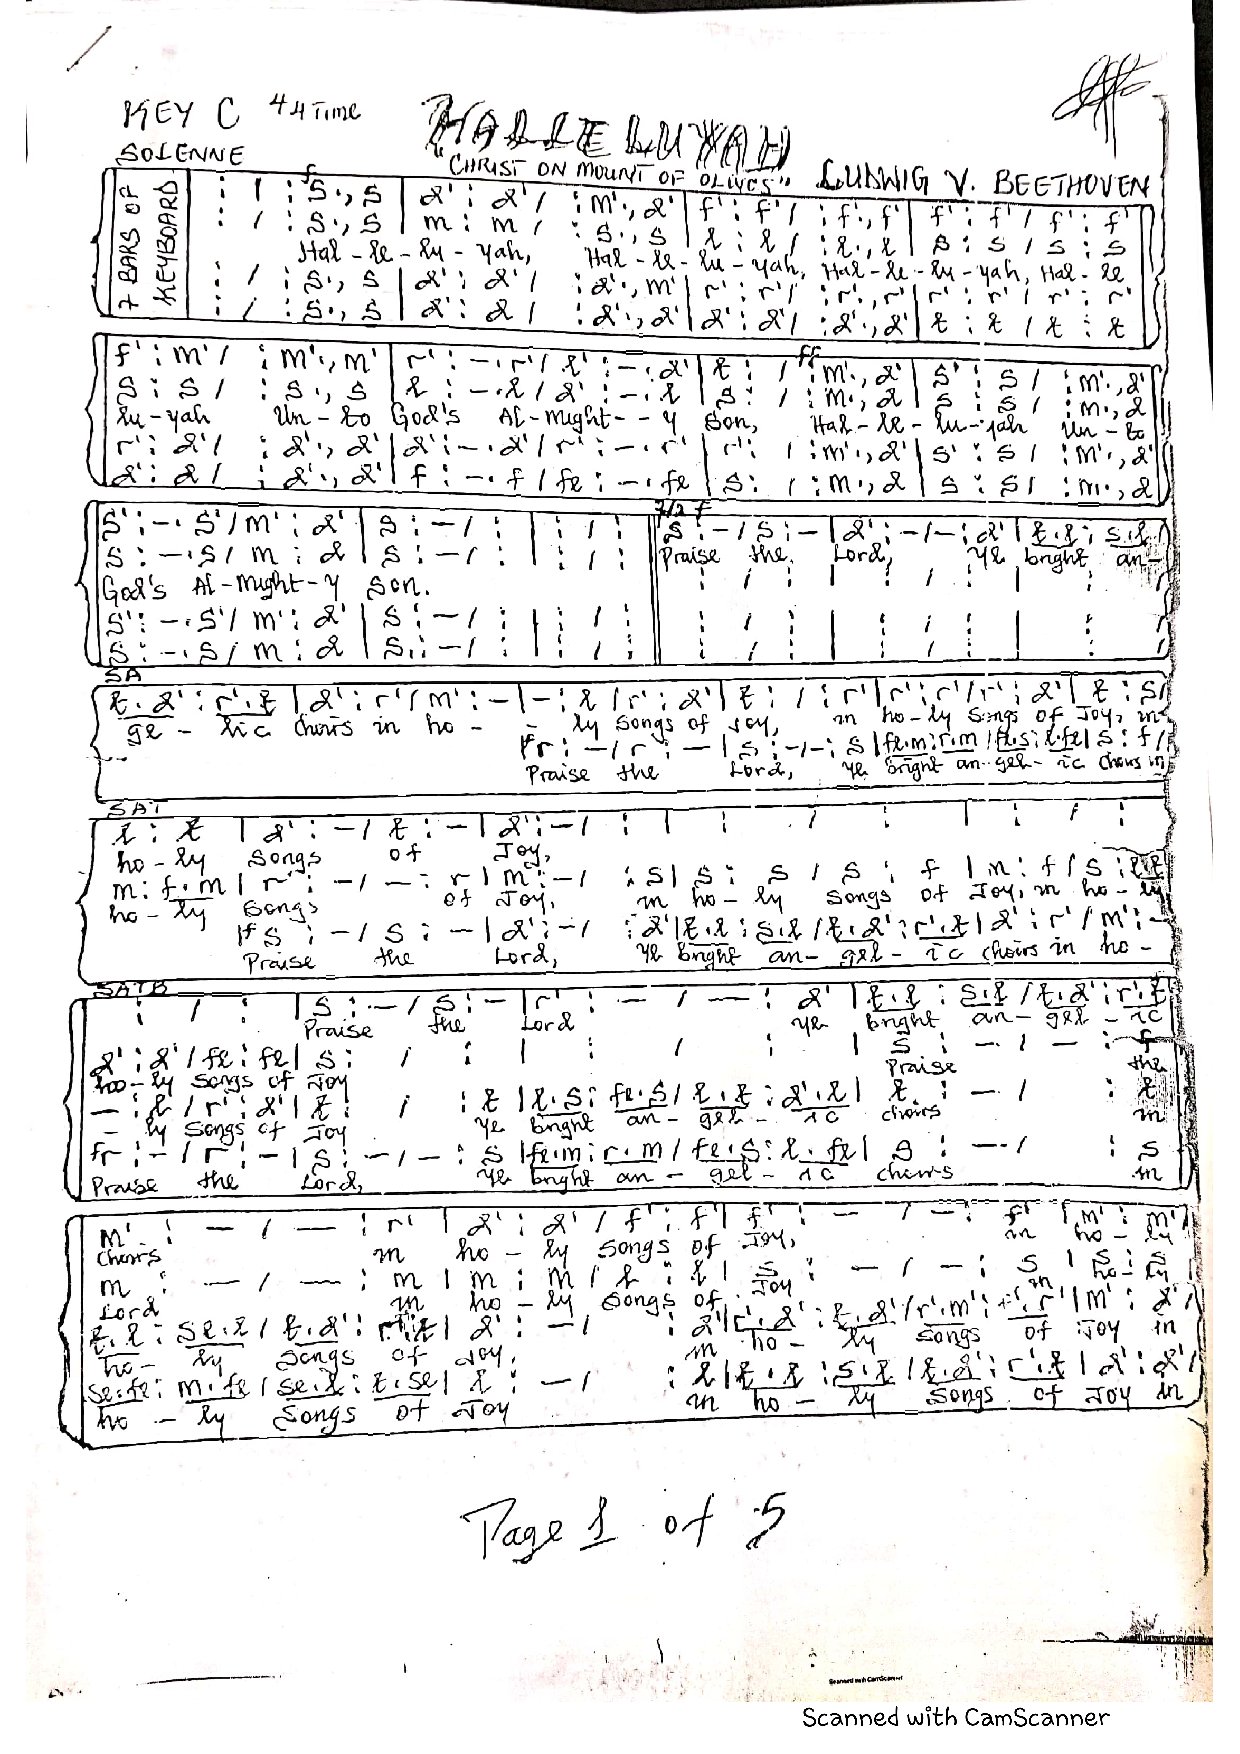 KEY C 4/4 Time
HALLELUYAH
SOLENNE
"CHRIST ON MOUNT OF OLIVES"
LUDWIG V. BEETHOVEN
7 BARS OF KEYBOARD
f
: / : s., s | d' : d' / : m'., d' | f' : f' / : f'., f' | f' : f' / f' : f'
: / : s., s | m : m / : s., s | l : l / : l., l | s : s / s : s
Hal-le-lu-yah, Hal-le-lu-yah, Hal-le-lu-yah, Hal-le
: / : s., s | d' : d' / : d'., m' | r' : r' / : r'., r' | r' : r' / r' : r'
: / : s., s | d' : d / : d'., d' | d' : d' / : d'., d' | t : t / t : t
ff
f' : m' / : m'., m' | r' : -. r' / l' : -. d' | t : / : m'., d' | s' : s / : m'., d'
s : s / : s., s | l : -. l / d' : -. l | s : / : m., d | s : s / : m., d
lu-yah Un-to God's Al-might--y Son, Hal-le-lu-yah Un-to
r' : d' / : d'., d' | d' : -. d' / r' : -. r' | r' : / : m'., d' | s' : s / : m'., d'
d' : d / : d'., d' | f : -. f / fe : -. fe | s : / : m., d | s : s / : m., d
s' : -. s' / m' : d' | s : - / : | : / : || s : - / s : - | d' : - / - : d' | t.l : s.l /
s : -. s / m : d | s : - / : | : / :
Praise the Lord, Ye bright an-
God's Al-might-y Son.
s' : -. s' / m' : d' | s : - / : | : / :
s : -. s / m : d | s : - / : | : / :
SA
t.d' : r'.t | d' : r' / m' : - | - : l / r' : d' | t : / : r' | r' : r' / r' : d' | t : s /
ge-lic Choirs in ho--ly Songs of Joy, in ho-ly Songs of Joy, in
f r : - / r : - | s : - / - : s | fe.m : r.m / fe.s : l.fe | s : f /
Praise the Lord, Ye bright an-gel-ic Choirs in
SAT
l : t | d' : - / t : - | d' : - / : | : / : | : / :
ho-ly Songs of Joy,
m : f.m | r : - / - : r | m : - / : s | s : s / s : f | m : f / s : l.t
ho-ly Songs of Joy, in ho-ly Songs of Joy, in ho-ly
f s : - / s : - | d' : - / : d' | t.l : s.l / t.d' : r'.t | d' : r' / m' : -
Praise the Lord, Ye bright an-gel-ic choirs in ho-
SATB
: / : | s : - / s : - | r' : - / - : d' | t.l : s.l / t.d' : r'.t
Praise the Lord Ye bright an-gel-ic
d' : d' / fe : fe | s : / : | : / : | s : - / - : f
ho-ly Songs of Joy Praise the
- : l / r' : d' | t : / : t | l.s : fe.s / l.t : d'.l | t : - / : t
- ly Songs of Joy Ye bright an-gel-ic choirs in
f r : - / r : - | s : - / - : s | fe.m : r.m / fe.s : l.fe | s : - / : s
Praise the Lord, Ye bright an-gel-ic choirs in
m' : - / - : r' | d' : d' / f' : f' | f' : - / - : f' | m' : m' /
Choirs in ho-ly Songs of Joy, in ho-ly
m : - / - : m | m : m / l : l | s : - / - : s | s : s
Lord in ho-ly Songs of Joy in ho-ly
t.l : se.l / t.d' : r'.t | d' : - / : d' | r'.d' : t.d' / r'.m' : f'.r' | m' : d' /
ho-ly Songs of Joy, in ho-ly Songs of Joy in
se.fe : m.fe / se.l : t.se | l : - / : l | t.l : s.l / t.d' : r'.t | d' : d' /
ho-ly Songs of Joy in ho-ly Songs of Joy in
Page 1 of 5
Scanned with CamScanner
Scanned with CamScanner